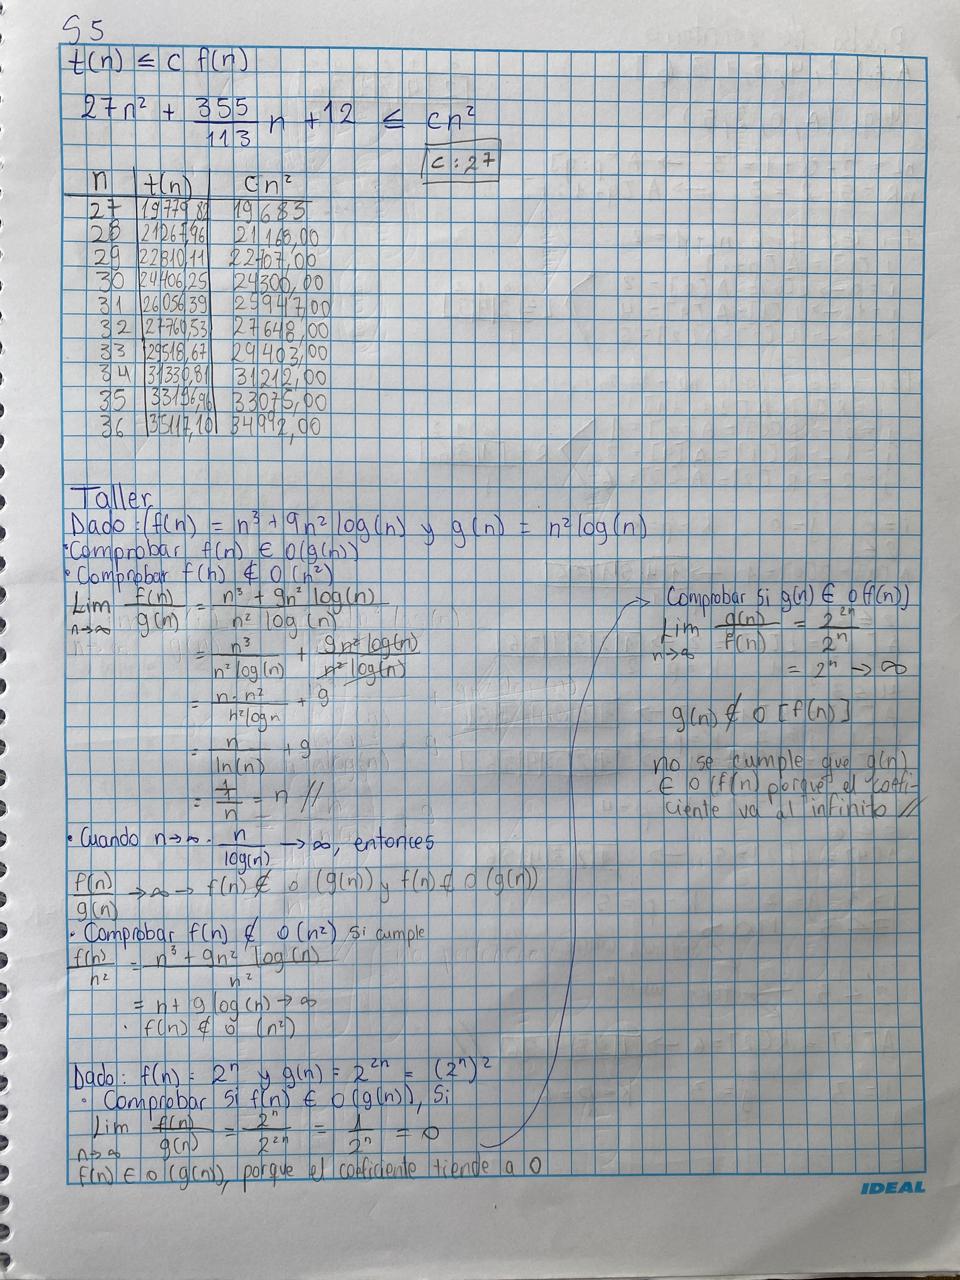 S5
t(n) ≤ c f(n)
27n² + 355/113 n + 12 ≤ cn²
c : 27
n t(n) Cn²
27 19779,82 19683
28 21267,96 21168,00
29 22810,11 22707,00
30 24406,25 24300,00
31 26056,39 25947,00
32 27760,53 27648,00
33 29518,67 29403,00
34 31330,81 31212,00
35 33196,96 33075,00
36 35117,10 34992,00
Taller
Dado: f(n) = n³ + 9n² log(n) y g(n) = n² log(n)
· Comprobar f(n) ∈ O(g(n))
· Comprobar f(n) ∉ O(n²)
Lim n→∞ f(n)/g(n) = n³ + 9n² log(n) / n² log(n)
= n³ / n² log(n) + 9n² log(n) / n² log(n)
= n · n² / n² log n + 9
= n / ln(n) + 9
= 1 / 1/n = n //
· Cuando n→∞ · n / log(n) → ∞, entonces
f(n)/g(n) → ∞ → f(n) ∉ O (g(n)) y f(n) ∉ O (g(n))
· Comprobar f(n) ∉ O(n²) Si cumple
f(n)/n² = n³ + 9n² log(n) / n²
= n + 9 log(n) → ∞
· f(n) ∉ O (n²)
Dado: f(n) = 2ⁿ y g(n) = 2²ⁿ = (2ⁿ)²
· Comprobar Si f(n) ∈ O(g(n)), Si
Lim n→∞ f(n)/g(n) = 2ⁿ / 2²ⁿ = 1 / 2ⁿ = 0
f(n) ∈ O (g(n)), porque el coeficiente tiende a 0
Comprobar si g(n) ∈ O(f(n))
Lim n→∞ g(n)/f(n) = 2²ⁿ / 2ⁿ
= 2ⁿ → ∞
g(n) ∉ O [f(n)]
no se cumple que g(n)
∈ O (f(n) porque el coefi-
ciente va al infinito //
IDEAL